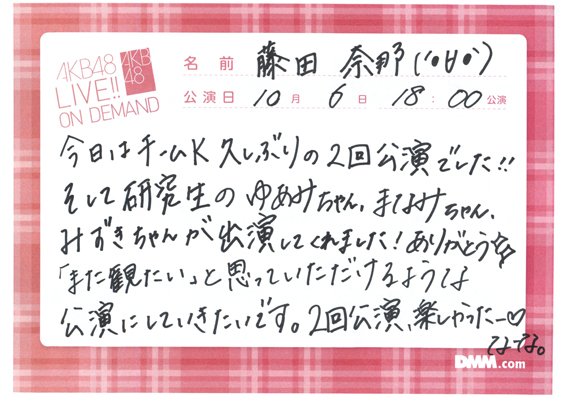 AKB48
LIVE!!
ON DEMAND
AKB
48
名前 藤田 奈那(´•∀•`)
公演日 10月 6日 18:00公演
今日はチームK久しぶりの2回公演でした!!
そして研究生のゆあみちゃん、まなみちゃん、
みずきちゃんが出演してくれました!ありがとう☆☆
「また観たい」と思っていただけるような
公演にしていきたいです。2回公演、楽しかったー♡
なーな。
DMM.com